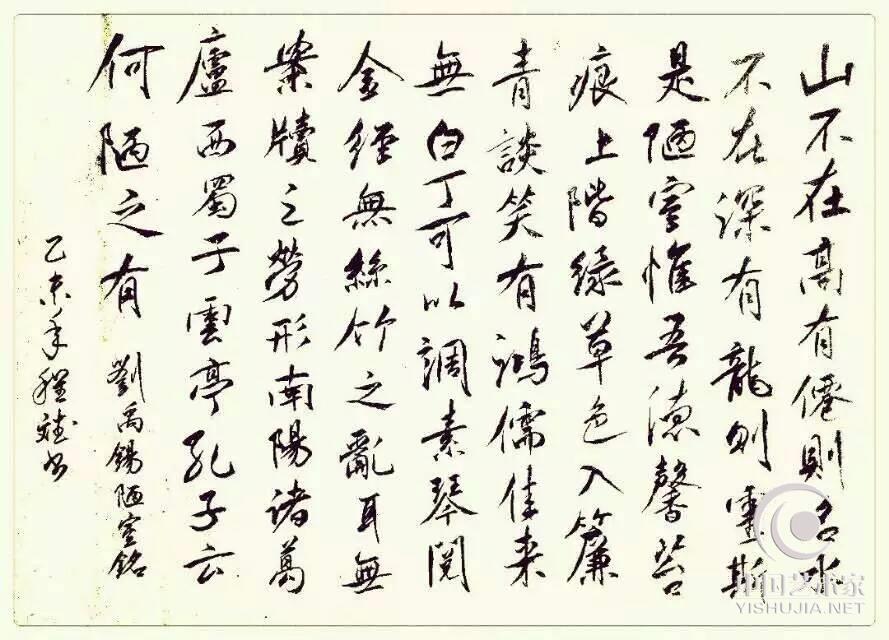 山不在高有僊則名水
不在深有龍則靈斯
是陋室惟吾德馨苔
痕上階緑草色入簾
青談笑有鴻儒往来
無白丁可以調素琴閲
金經無絲竹之亂耳無
案牘之勞形南陽諸葛
廬西蜀子雲亭孔子云
何陋之有
劉禹錫陋室銘
乙未年程斌书
中国艺术家
YISHUJIA.NET